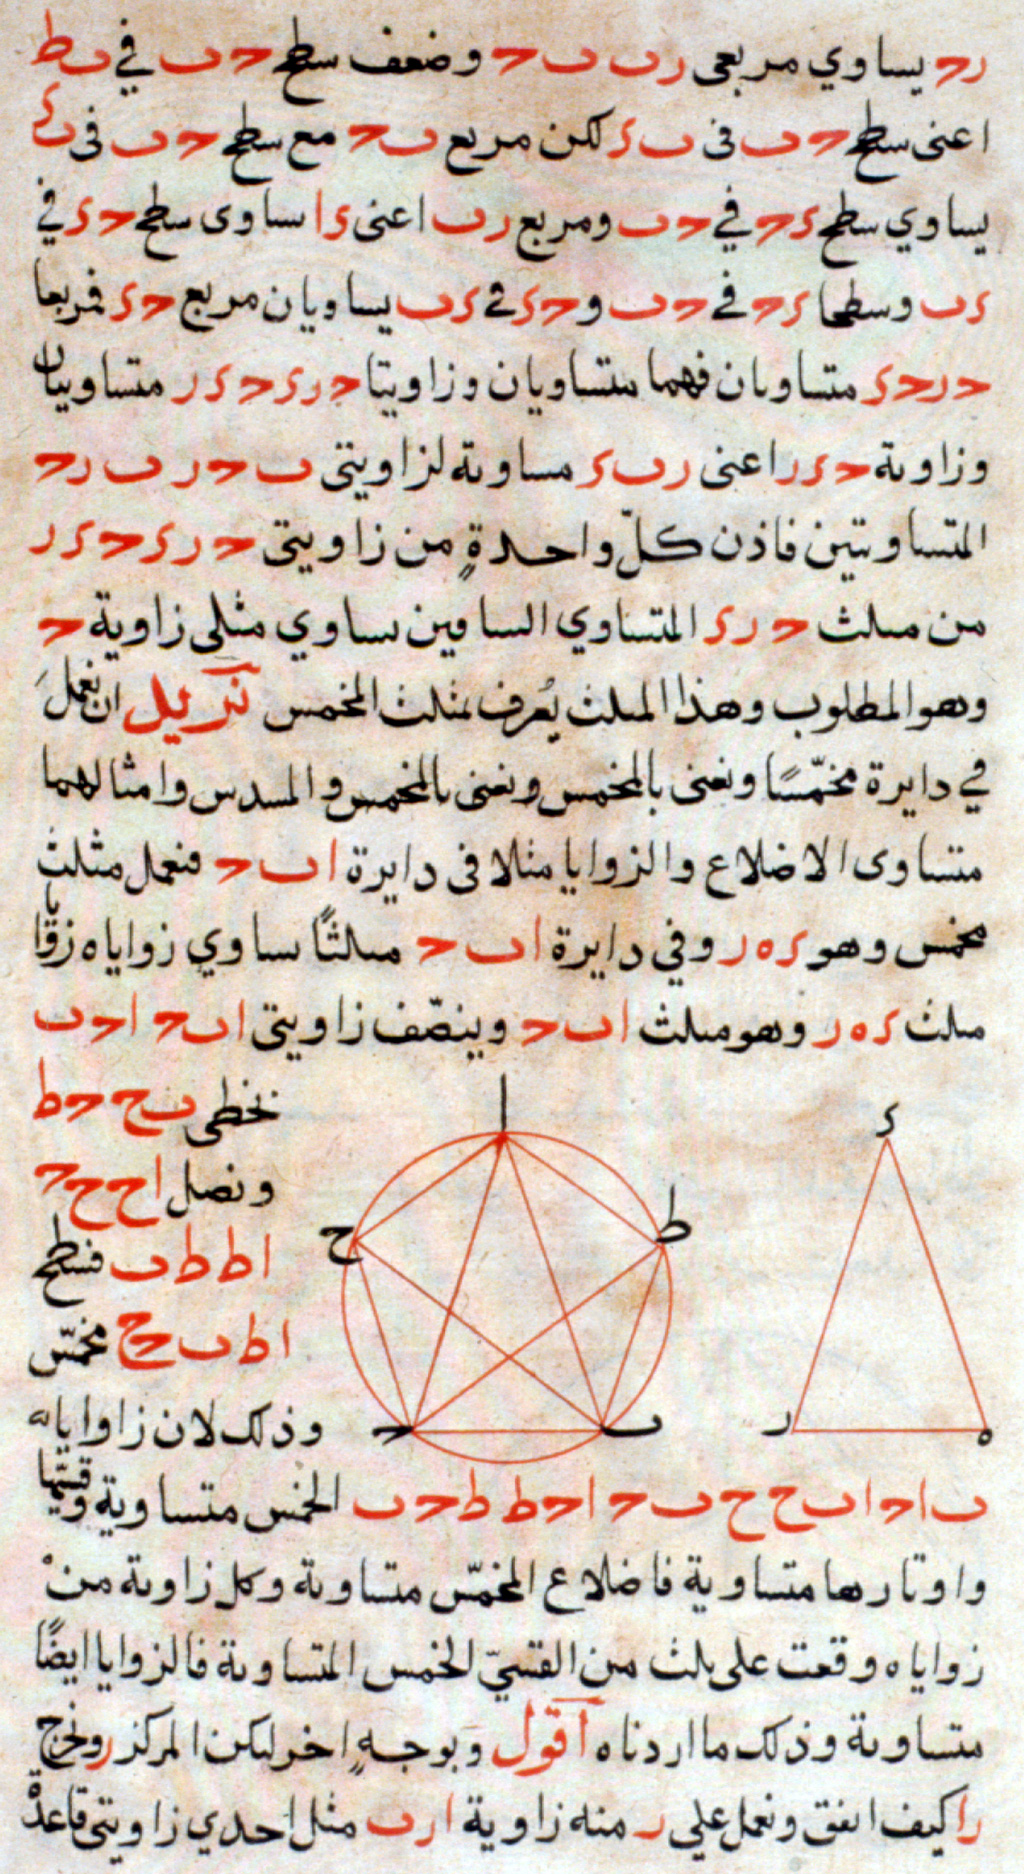 رح يساوي مربعى رب ب ح وضعف سطح ح ب في ب ط
اعنى سطح ح ب فى ب ء لكن مربع ب ح مع سطح ح ب فى ب ء
يساوي سطح ء ح في ح ب ومربع ر ب اعنى ء ا ساوى سطح ح ء في
ء ب وسطحا ء ح في ح ب و ح ء في ء ب يساويان مربع ح ء فمربعا
ح ر ح ء متساويان فهما متساويان وزاويتا ح ر ء ح ء ر متساويتان
وزاوية ح ء ر اعنى ر ب ء مساوية لزاويتى ب ح ر ب ر ح
المتساويتين فاذن كلّ واحدةٍ من زاويتى ح ر ء ح ء ر
من مثلث ح ر ء المتساوي الساقين يساوي مثلى زاوية ح
وهو المطلوب وهذا المثلث يُعرف بمثلث المخمس نريد ان نعمل
في دايرة مخمّسًا ونعنى بالمخمس ونعنى بالمخمس والمسدس وامثالهما
متساوى الاضلاع والزوايا مثلا فى دايرة ا ب ح فنعمل مثلث
مخمس وهو ء ه ر وفي دايرة ا ب ح مثلثًا يساوي زواياه زوايا
مثلث ء ه ر وهو مثلث ا ب ح وينصّف زاويتى ا ب ح ا ح ب
بخطى ب ح ح ط
ونصل ا ح ح ح
ا ط ط ب فسطح
ا ط ب ح ح مخمّس
ا
ط
ح
ح
ب
ء
ر
ه
وذلك لان زاوايا
ب ا ح ا ب ح ح ب ح ا ح ط ط ح ب الخمس متساوية وقسيّها
واوتارها متساوية فاضلاع المخمّس متساوية وكل زاوية منْ
زواياه وقعت على ثلث من القسيّ الخمس المتساوية فالزوايا ايضًا
متساوية وذلك ما اردناه اقول وبوجهٍ اخر ليكن المركز ر ونخرج
ر ا كيف اتفق ونعمل على ر منه زاوية ا ر ب مثل احدي زاويتى قاعدة